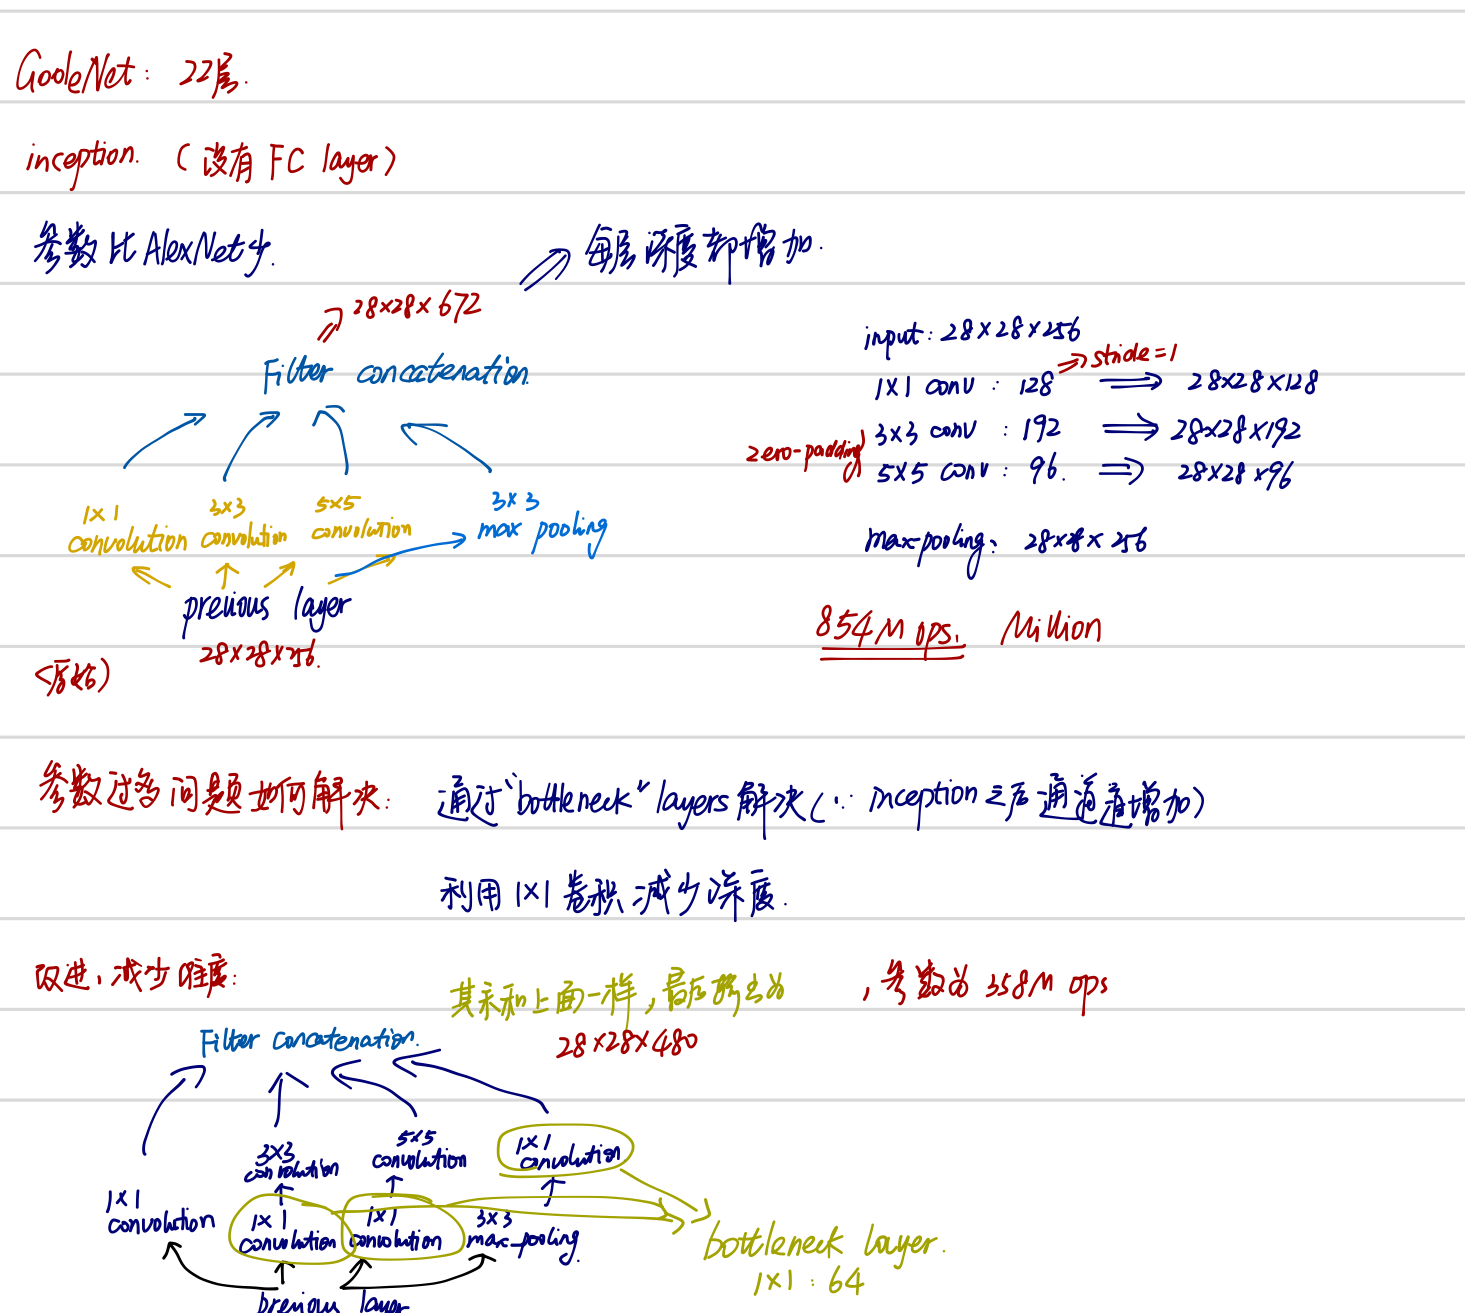 GooleNet: 22层.
inception. (没有 FC layer)
参数比 AlexNet 少.
⇒ 每层深度却增加.
⇒ 28×28×672
Filter concatenation.
1×1 convolution
3×3 convolution
5×5 convolution
3×3 max pooling
previous layer
28×28×256.
<原始)
input: 28×28×256
⇒ stride=1
1×1 conv : 128 ⇒ 28×28×128
zero-padding
3×3 conv : 192 ⇒ 28×28×192
5×5 conv : 96. ⇒ 28×28×96
max-pooling: 28×28×256
854M ops. Million
参数过多问题如何解决: 通过"bottleneck" layers 解决(∵ inception 之后通道道增加)
利用 1×1 卷积减少深度.
改进,减少维度:
其余和上面一样,最后输出为
28×28×480
,参数为 358M ops
Filter concatenation.
1×1 convolution
3×3 convolution
5×5 convolution
1×1 convolution
1×1 convolution
1×1 convolution
3×3 max-pooling.
previous layer
bottleneck layer.
1×1 : 64